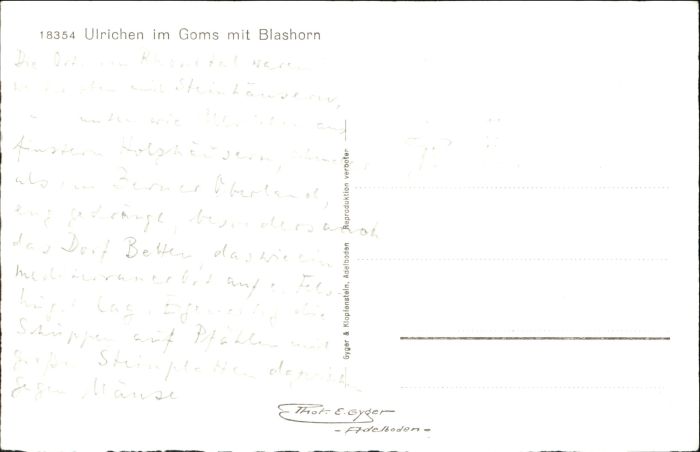 18354 Ulrichen im Goms mit Blashorn
Die Orte im Rhonetal waren
mit Steinhäusern,
unten wie Ulrichen aus
finstern Holzhäusern,
als im Berner Oberland,
eng gedrängt, besonders auch
das Dorf Betten, das wie ein
auf e. Fels-
hügel lag. Eigenartig die
Schuppen auf Pfählen mit
großen Steinplatten
gegen Mäuse
Gyger & Klopfenstein, Adelboden Reproduktion verboten
Phot. E. Gyger
- Adelboden -